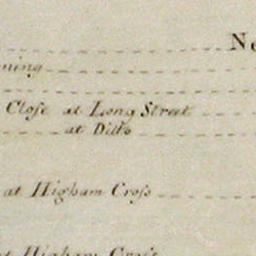 ning
Close at Long Street
at Ditto
at Higham Cross
at Higham Cross